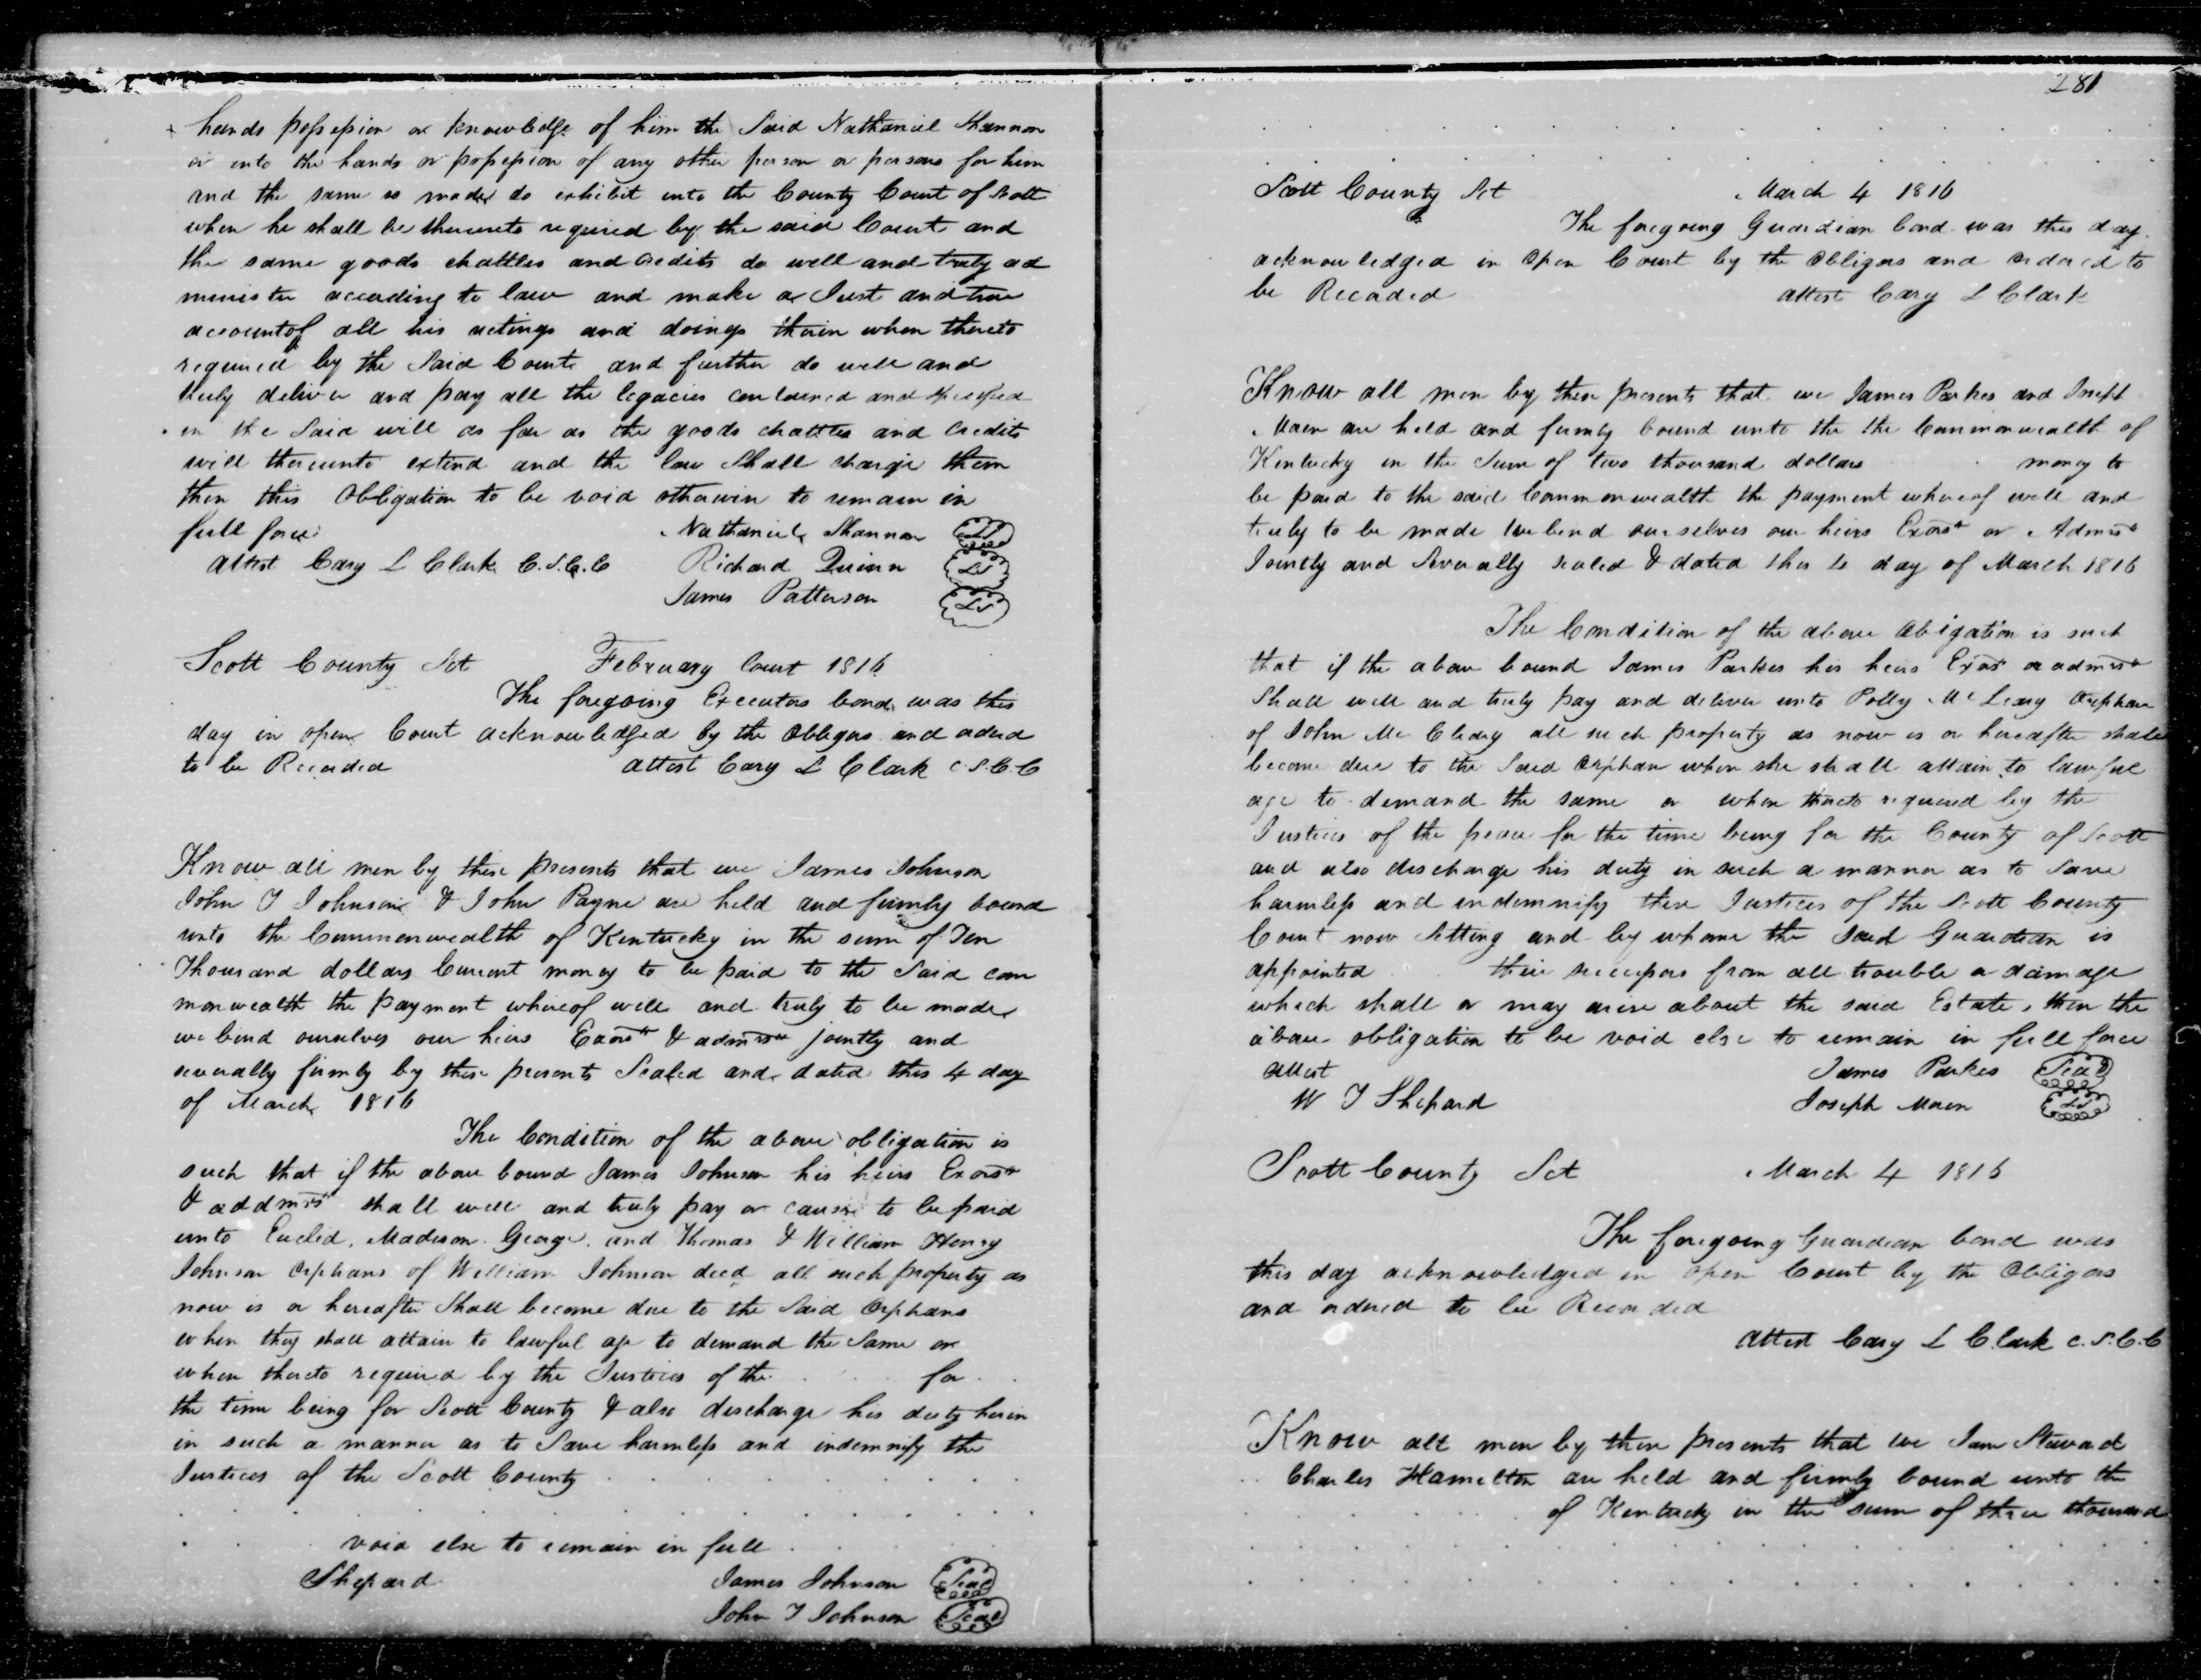 hands possession or knowledge of him the Said Nathaniel Shannon
or into the hands or possession of any other person or persons for him
and the same so made do exhibit into the County Court of Scott
when he shall be thereunto required by the said Court and
the same goods chattles and credits do well and truly ad
minister according to law and make a Just and true
account of all his actings and doings therin when thereto
required by the Said Court and further do well and
truly deliver and pay all the legacies contained and specified
in the Said will as far as the goods chattles and credits
will thereunto extend and the law Shall charge them
then this Obligation to be void otherwise to remain in
full force Nathaniel Shannon LS
Attest Cary L Clark C.S.C.C Richard Quinn LS
James Patterson LS
Scott County Sct February Court 1816
The foregoing Executors bond was this
day in open Court acknowledged by the Obligors and ordered
to be Recorded attest Cary L Clark C.S.C.C
Know all men by these presents that we James Johnson
John T Johnson & John Payne are held and firmly bound
unto the Commonwealth of Kentucky in the sum of Ten
Thousand dollars Current money to be paid to the Said com
monwealth the payment whereof well and truly to be made
we bind ourselves our heirs Exors & admrs jointly and
severally firmly by these presents Sealed and dated this 4 day
of March 1816
The Condition of the above obligation is
such that if the above bound James Johnson his heirs Exors
& addmrs shall well and truly pay or cause to be paid
unto Euclid, Madison George, and Thomas & William Henry
Johnson Orphans of William Johnson decd all such property as
now is or hereafter Shall become due to the Said Orphans
when they shall attain to lawful age to demand the Same or
when thereto required by the Justices of the . . . for . .
the time being for Scott County & also discharge his duty herin
in such a manner as to Save harmless and indemnify the
Justices of the Scott County
void else to remain in full
Shepard James Johnson Seal
John T Johnson Seal
281
Scott County Sct March 4 1816
The foregoing Guardian bond was this day
acknowledged in Open Court by the Obligors and ordered to
be Recorded attest Cary L Clark
Know all men by these presents that we James Parkes and Joseph
Maen are held and firmly bound unto the the Commonwealth of
Kentucky in the Sum of two thousand dollars money to
be paid to the said Commonwealth the payment whereof well and
truly to be made we bind ourselves our heirs Exors or Admrs
Jointly and Severally sealed & dated this 4 day of March 1816
The Condition of the above Obigation is such
that if the above bound James Parkes his heirs Exors or admrs
Shall well and truly pay and deliver unto Polly McLeary Orphan
of John McCleary all such property as now is or hereafter shall
become due to the Said Orphan when she shall attain to lawful
age to demand the same or when thereto required by the
Justices of the peace for the time being for the County of Scott
and also discharge his duty in such a manner as to Save
harmless and indemnify there Justices of the Scott County
Court now Sitting and by whome the Said Guardian is
appointed their successors from all trouble or damage
which shall or may arise about the said Estate, then the
above obligation to be void else to remain in full force
Attest James Parkes Seal
W T Shepard Joseph Maen LS
Scott County Sct March 4 1816
The foregoing Guardian bond was
this day acknowledged in open Court by the Obligors
and ordered to be Recorded
Attest Cary L Clark C.S.C.C
Know all men by these presents that we Sam Steward
Charles Hamelton are held and firmly bound unto the
of Kentucky in the sum of three thousand